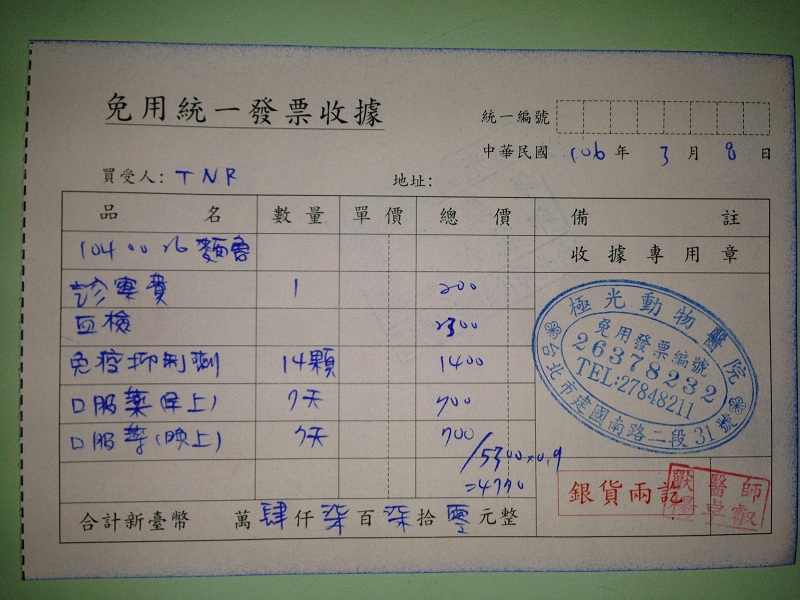 免用統一發票收據
統一編號
中華民國 106 年 3 月 8 日
買受人: TNR 地址:
品名 數量 單價 總價 備註
104 00 26 麵魯 收據專用章
診察費 1 200
血檢 2300
免疫抑制劑 14顆 1400
口服藥(早上) 7天 700
口服藥(晚上) 7天 700
/5300×0.9
=4770
合計新臺幣 萬肆仟柒百柒拾零元整
極光動物醫院
免用發票編號
26378232
TEL:27848211
台北市建國南路二段31號
銀貨兩訖
獸醫師
楊卓叡